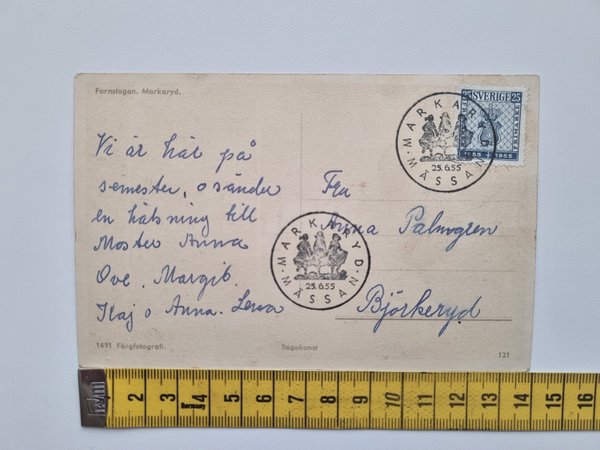 Fornstugan. Markaryd.
Vi är här på
semester, o sänder
en hälsning till
Moster Anna
Ove, Margit.
Kaj o Anna-Lena
Fru
Anna Palmgren
Björkeryd
MARKARYD
MÄSSAN
25.6.55
MARKARYD
MÄSSAN
25.6.55
25 SVERIGE 25
1855 1955
1691 Färgfotografi.
Sagokonst
121
2 3 4 5 6 7 8 9 10 11 12 13 14 15 16
Germany